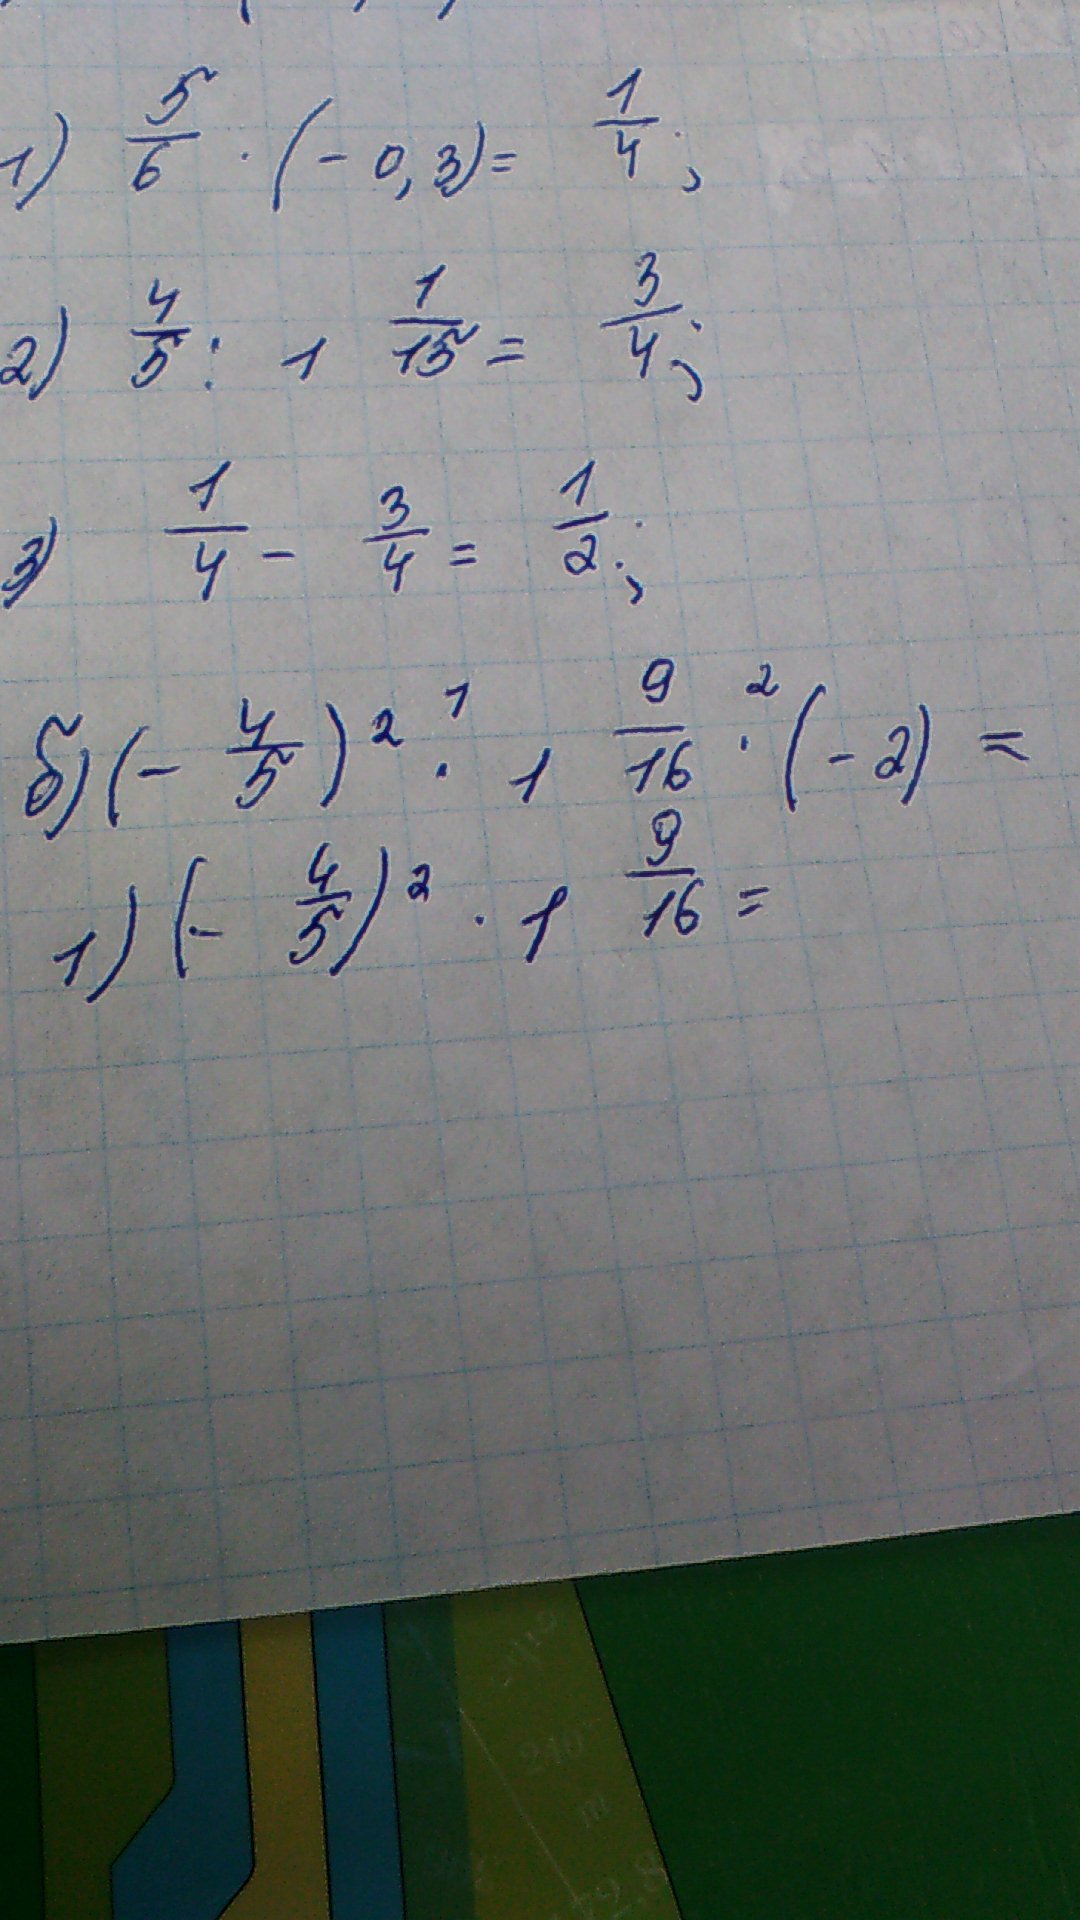 1) 5/6 · (- 0,3) = 1/4;
2) 4/5 : 1 1/15 = 3/4;
3) 1/4 - 3/4 = 1/2;
б) (- 4/5)² ·¹ 1 9/16 ·² (- 2) =
1) (- 4/5)² · 1 9/16 =
210